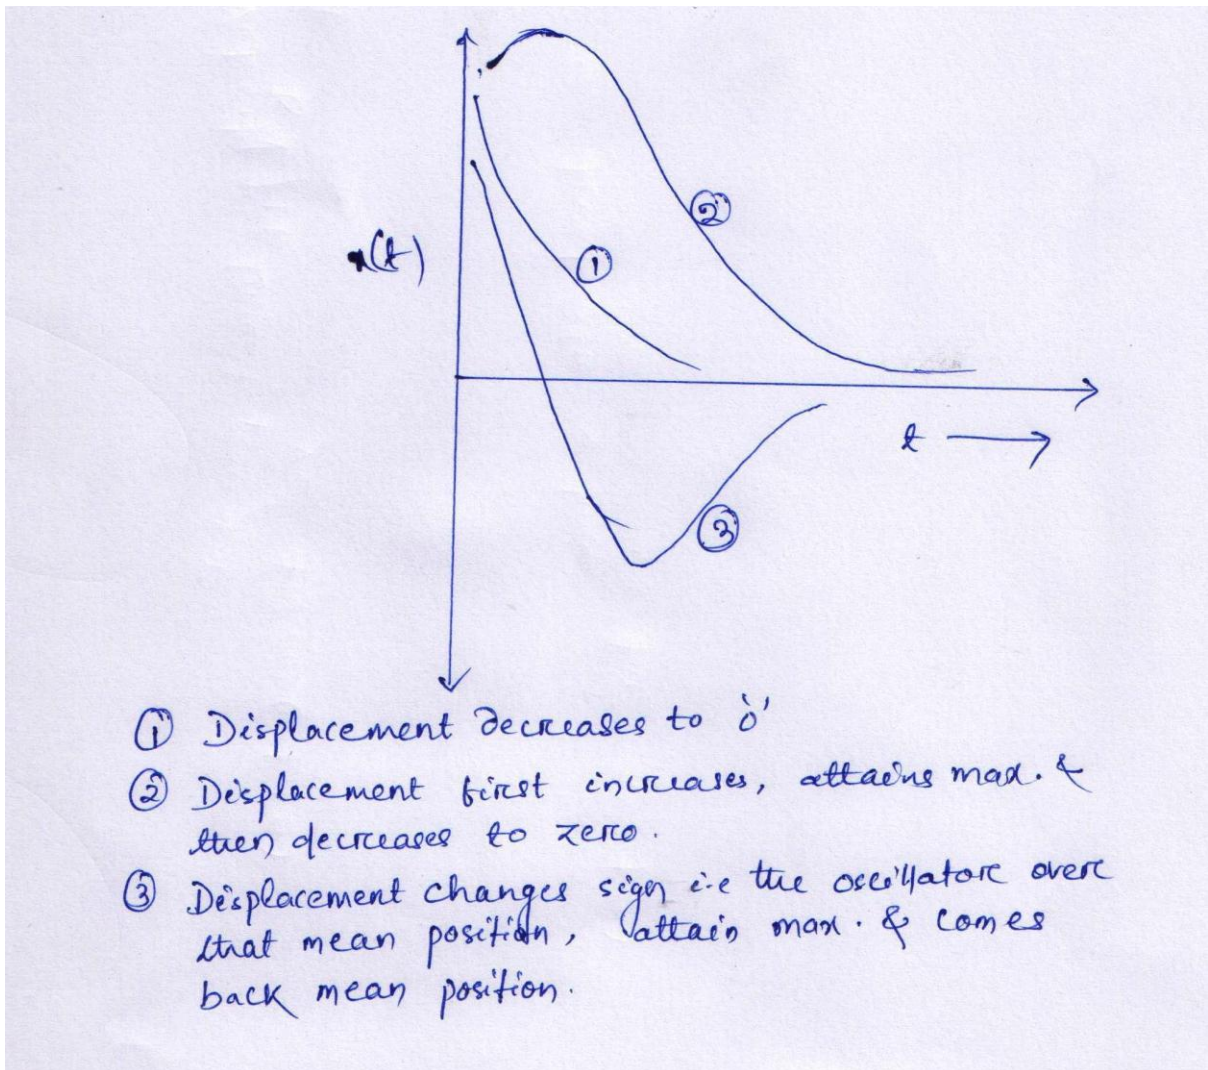 x(t)
②
①
t
③
① Displacement decreases to '0'
② Displacement first increases, attains max. &
then decreases to zero.
③ Displacement changes sign i.e the oscillator over
that mean position, attain max. & comes
back mean position.